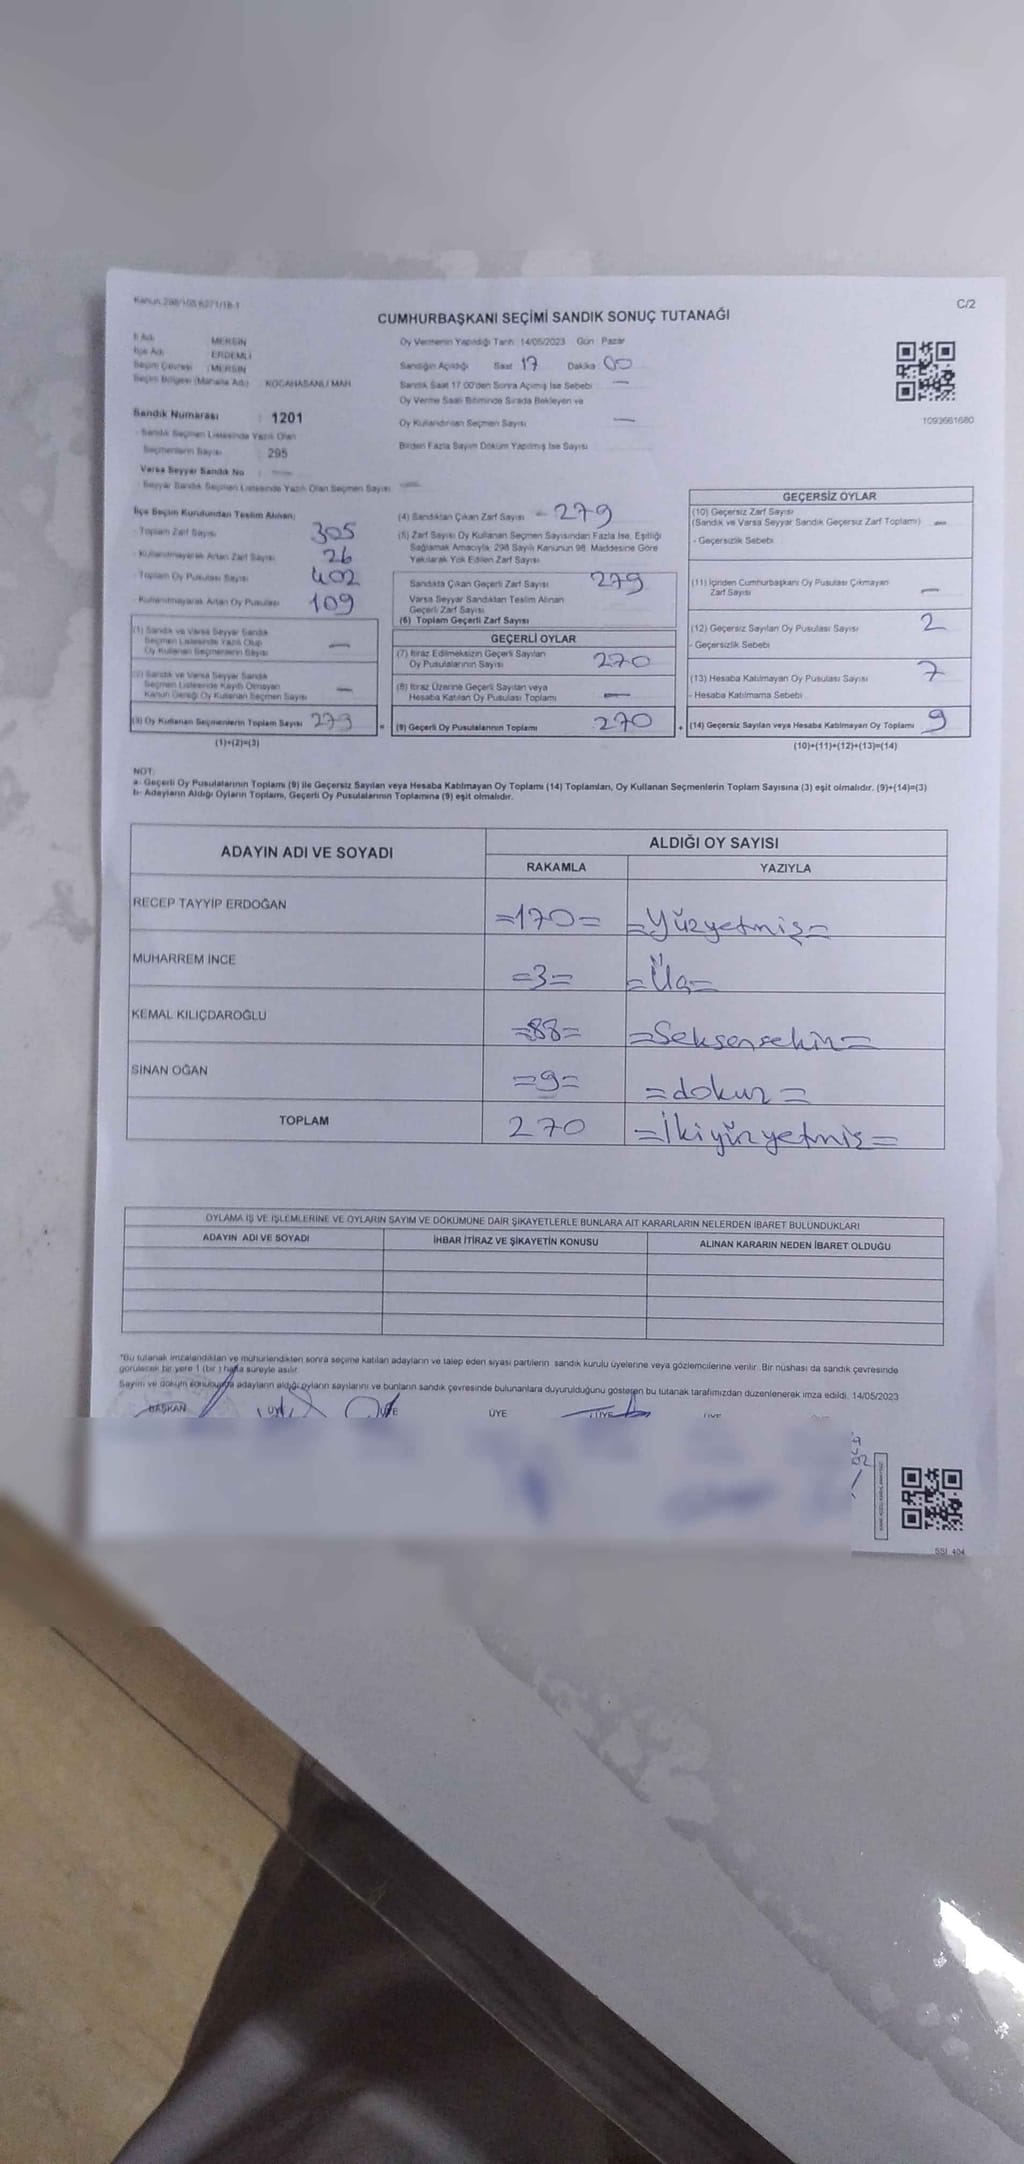 C/2
CUMHURBAŞKANI SEÇİMİ SANDIK SONUÇ TUTANAĞI
İl Adı MERSİN
İlçe Adı ERDEMLİ
Seçim Çevresi : MERSİN
Seçim Bölgesi (Mahalle Adı) : KOCAHASANLI MAH.
Oy Vermenin Yapıldığı Tarih: 14/05/2023 Gün: Pazar
Sandığın Açıldığı Saat 17 Dakika 00
Sandık Saat 17.00'den Sonra Açılmış İse Sebebi —
Oy Verme Saati Bitiminde Sırada Bekleyen ve
Oy Kullandırılan Seçmen Sayısı —
Birden Fazla Sayım Döküm Yapılmış İse Sayısı
1093661680
Sandık Numarası : 1201
- Sandık Seçmen Listesinde Yazılı Olan
Seçmenlerin Sayısı : 295
Varsa Seyyar Sandık No —
- Seyyar Sandık Seçmen Listesinde Yazılı Olan Seçmen Sayısı —
İlçe Seçim Kurulundan Teslim Alınan;
- Toplam Zarf Sayısı 305
- Kullanılmayarak Artan Zarf Sayısı 26
- Toplam Oy Pusulası Sayısı 402
- Kullanılmayarak Artan Oy Pusulası 109
(1) Sandık ve Varsa Seyyar Sandık
Seçmen Listesinde Yazılı Olup
Oy Kullanan Seçmenlerin Sayısı —
(2) Sandık ve Varsa Seyyar Sandık
Seçmen Listesinde Kayıtlı Olmayan
Kanun Gereği Oy Kullanan Seçmen Sayısı —
(3) Oy Kullanan Seçmenlerin Toplam Sayısı 279
(1)+(2)=(3)
(4) Sandıktan Çıkan Zarf Sayısı - 279
(5) Zarf Sayısı Oy Kullanan Seçmen Sayısından Fazla İse, Eşitliği
Sağlamak Amacıyla, 298 Sayılı Kanunun 98. Maddesine Göre
Yakılarak Yok Edilen Zarf Sayısı
Sandıkta Çıkan Geçerli Zarf Sayısı 279
Varsa Seyyar Sandıktan Teslim Alınan
Geçerli Zarf Sayısı
(6) Toplam Geçerli Zarf Sayısı
GEÇERLİ OYLAR
(7) İtiraz Edilmeksizin Geçerli Sayılan
Oy Pusulalarının Sayısı 270
(8) İtiraz Üzerine Geçerli Sayılan veya
Hesaba Katılan Oy Pusulası Toplamı —
= (9) Geçerli Oy Pusulalarının Toplamı 270
GEÇERSİZ OYLAR
(10) Geçersiz Zarf Sayısı
(Sandık ve Varsa Seyyar Sandık Geçersiz Zarf Toplamı) —
- Geçersizlik Sebebi
(11) İçinden Cumhurbaşkanı Oy Pusulası Çıkmayan
Zarf Sayısı —
(12) Geçersiz Sayılan Oy Pusulası Sayısı 2
- Geçersizlik Sebebi
(13) Hesaba Katılmayan Oy Pusulası Sayısı 7
- Hesaba Katılmama Sebebi
+ (14) Geçersiz Sayılan veya Hesaba Katılmayan Oy Toplamı 9
(10)+(11)+(12)+(13)=(14)
NOT:
a- Geçerli Oy Pusulalarının Toplamı (9) ile Geçersiz Sayılan veya Hesaba Katılmayan Oy Toplamı (14) Toplamları, Oy Kullanan Seçmenlerin Toplam Sayısına (3) eşit olmalıdır. (9)+(14)=(3)
b- Adayların Aldığı Oyların Toplamı, Geçerli Oy Pusulalarının Toplamına (9) eşit olmalıdır.
ADAYIN ADI VE SOYADI
ALDIĞI OY SAYISI
RAKAMLA YAZIYLA
RECEP TAYYİP ERDOĞAN =170= =Yüzyetmiş=
MUHARREM İNCE =3= =Üç=
KEMAL KILIÇDAROĞLU =88= =Seksensekiz=
SİNAN OĞAN =9= =dokuz=
TOPLAM 270 =İkiyüzyetmiş=
OYLAMA İŞ VE İŞLEMLERİNE VE OYLARIN SAYIM VE DÖKÜMÜNE DAİR ŞİKAYETLERLE BUNLARA AİT KARARLARIN NELERDEN İBARET BULUNDUKLARI
ADAYIN ADI VE SOYADI İHBAR İTİRAZ VE ŞİKAYETİN KONUSU ALINAN KARARIN NEDEN İBARET OLDUĞU
*Bu tutanak imzalandıktan ve mühürlendikten sonra seçime katılan adayların ve talep eden siyasi partilerin sandık kurulu üyelerine veya gözlemcilerine verilir. Bir nüshası da sandık çevresinde
görülecek bir yere 1 (bir ) hafta süreyle asılır.
Sayım ve döküm sonucunda adayların aldığı oyların sayılarını ve bunların sandık çevresinde bulunanlara duyurulduğunu gösteren bu tutanak tarafımızdan düzenlenerek imza edildi. 14/05/2023
BAŞKAN ÜYE ÜYE ÜYE ÜYE
SSİ 404